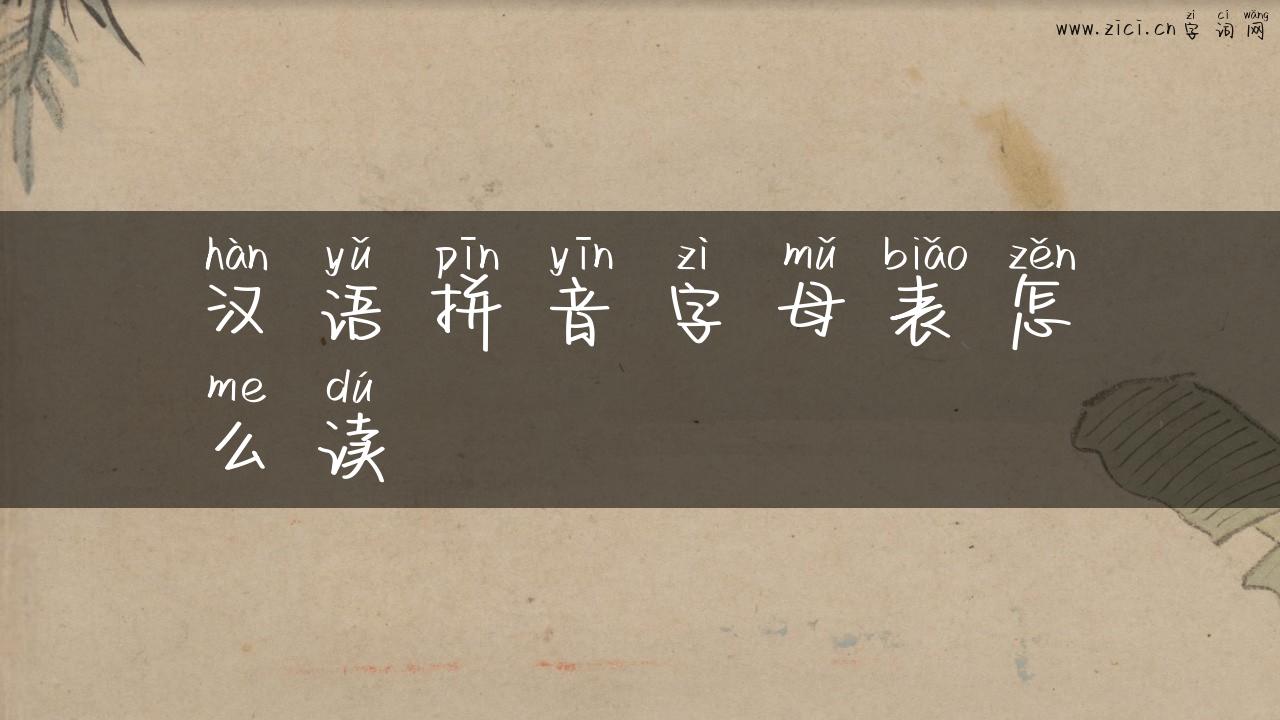 zì cí wǎng
www.zici.cn 字词网
hàn yǔ pīn yīn zì mǔ biǎo zěn
汉语拼音字母表怎
me dú
么读